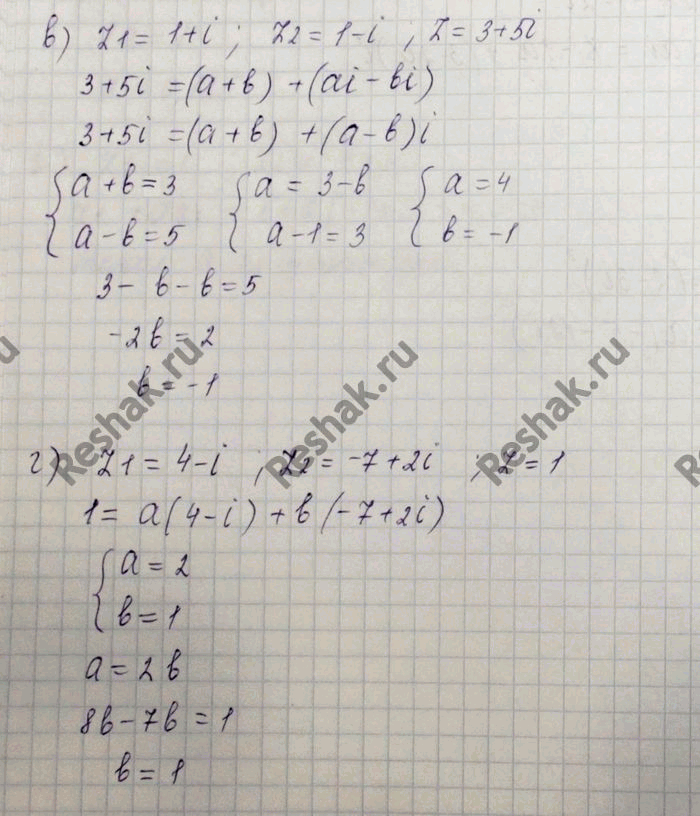 в) z1 = 1+i ; z2 = 1-i , z = 3+5i
3+5i = (a+b) + (ai - bi)
3+5i = (a+b) + (a-b)i
{a+b=3 {a = 3-b {a=4
a-b=5 a-1=3 b=-1
3- b-b=5
-2b=2
b=-1
Reshak.ru Reshak.ru Reshak.ru
г) z1 = 4-i ; z2 = -7+2i ; z=1
1= a(4-i)+b(-7+2i)
{a=2
b=1
a=2b
8b-7b=1
b=1